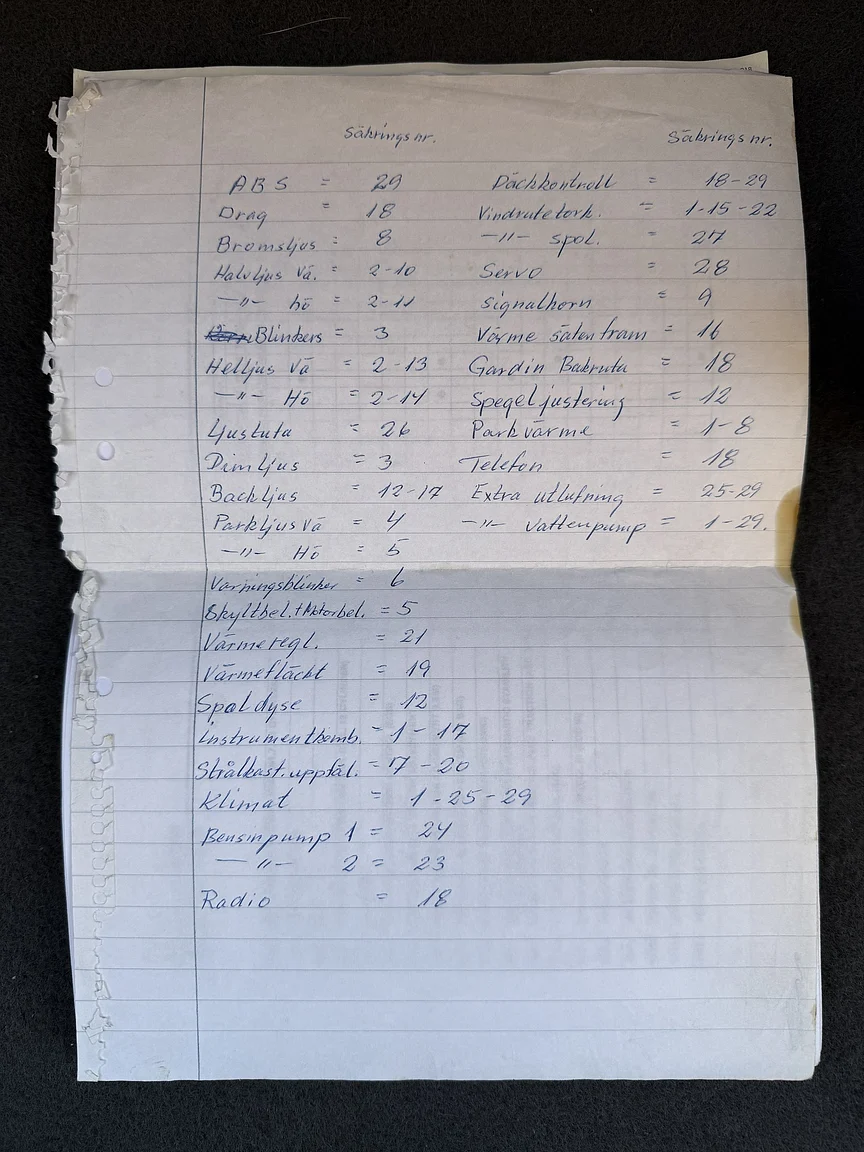 Säkringsnr.
ABS = 29
Drag = 18
Bromsljus = 8
Halvljus Vä. = 2-10
—〃— hö = 2-11
Blinkers = 3
Helljus Vä = 2-13
—〃— Hö = 2-14
Ljustuta = 26
Dimljus = 3
Backljus = 12-17
Parkljus Vä = 4
—〃— Hö = 5
Varningsblinker = 6
Skyltbel.+Motorbel. = 5
Värmeregl. = 21
Värmefläckt = 19
Spoldyse = 12
Instrumentkomb. = 1-17
Strålkast.uppfäl. = 7-20
Klimat = 1-25-29
Bensinpump 1 = 24
—〃— 2 = 23
Radio = 18
Säkringsnr.
Däckkontroll = 18-29
Vindrutetork. = 1-15-22
—〃— spol. = 27
Servo = 28
Signalhorn = 9
Värme säten fram = 16
Gardin Bakruta = 18
Spegeljustering = 12
Parkvärme = 1-8
Telefon = 18
Extra utluftning = 25-29
—〃— Vattenpump = 1-29.